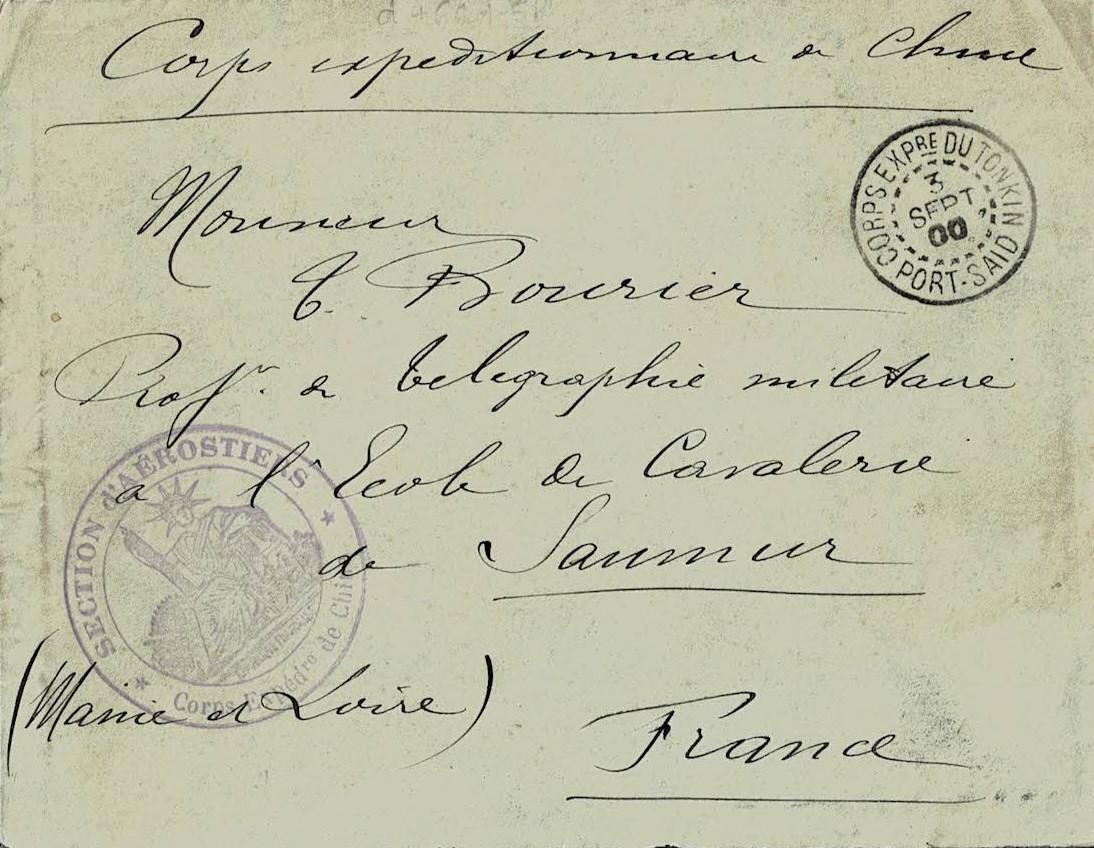 Corps expeditionnaire de Chine
CORPS EXPRE DU TONKIN
3
SEPT.
00
PORT-SAID
Monsieur
Bourier
Profr. de telegraphie militaire
à l'Ecole de Cavalerie
de Saumur
SECTION d'AÉROSTIERS
Corps Expédre de Chine
(Maine et Loire)
France